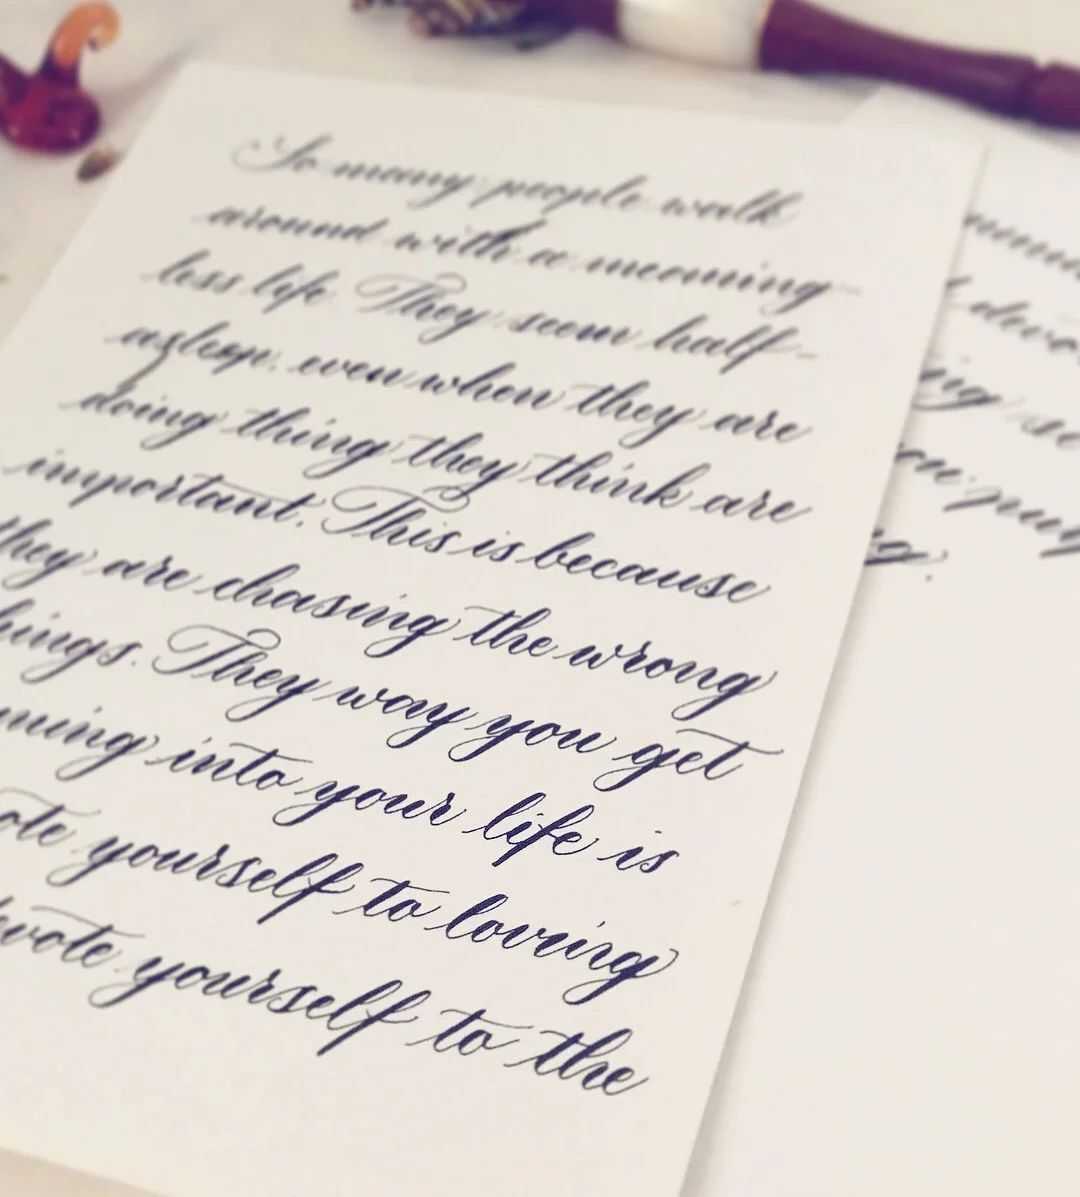 So many people walk
around with a meaning-
less life. They seem half-
asleep, even when they are
doing thing they think are
important. This is because
they are chasing the wrong
hings. They way you get
ning into your life is
ote yourself to loving
evote yourself to the
devo
ing so
ou pu